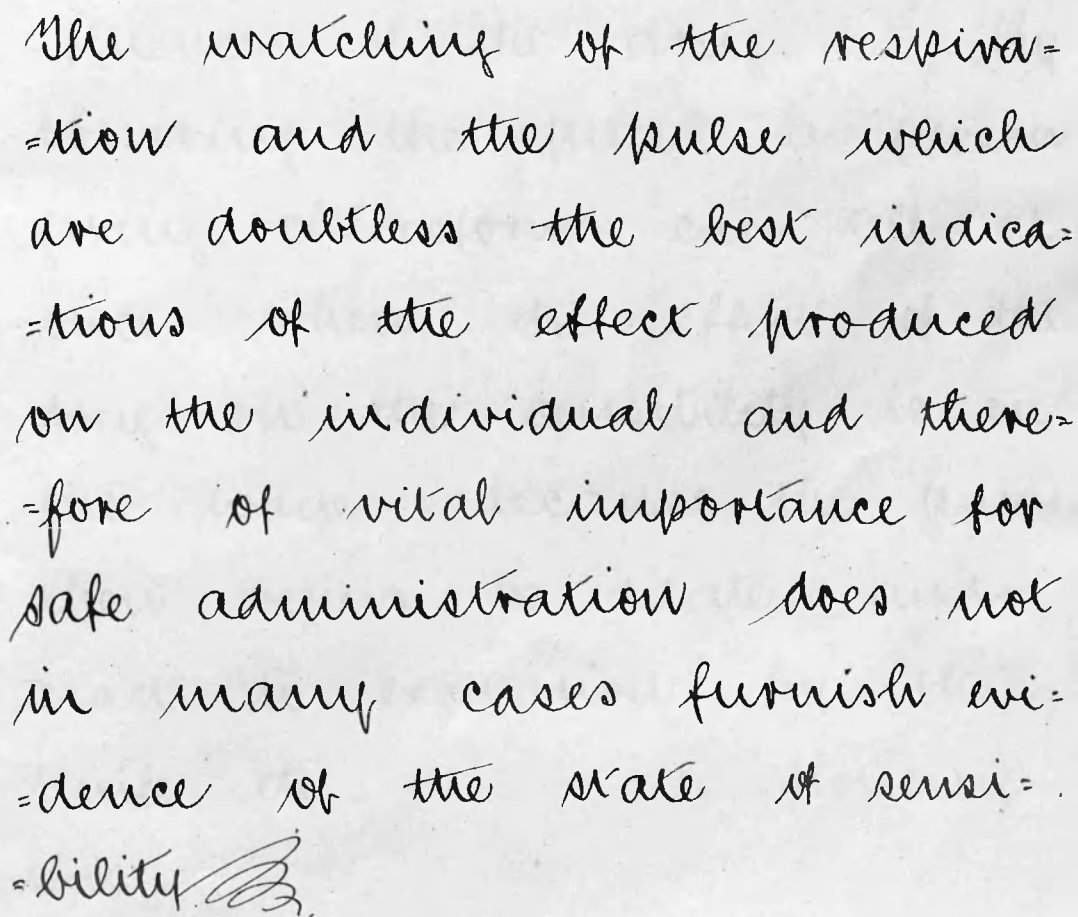 The watching of the respira=
=tion and the pulse which
are doubtless the best indica=
=tions of the effect produced
on the individual and there=
=fore of vital importance for
safe administration does not
in many cases furnish evi=
=dence of the state of sensi=
=bility